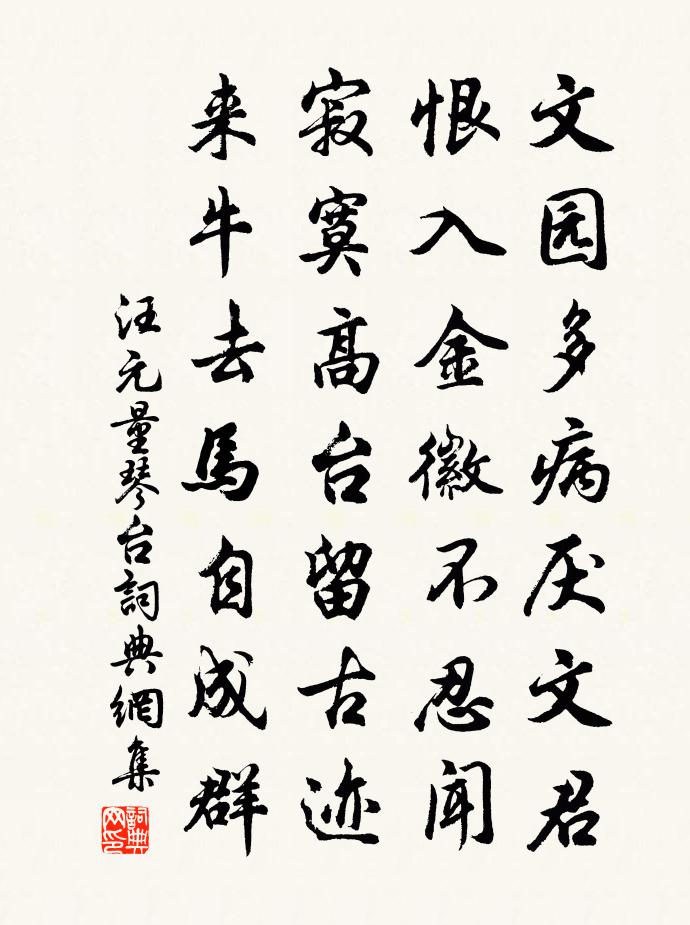 文园多病厌文君
恨入金徽不忍闻
寂寞高台留古迹
来牛去馬自成群
汪元量琴台詞典網集
詞典网印